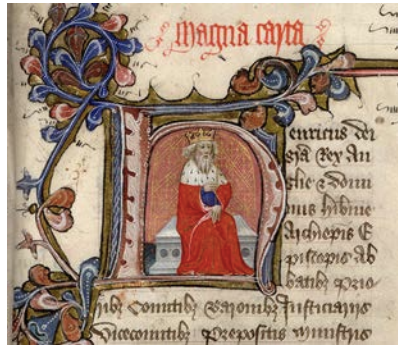 magna carta
Henricus dei
gr̃a Rex An
glie ⁊ domi
nus hib̃nie
Archiep̃is E
piscopis Ab
batibꝫ Prio
ribꝫ Comitibꝫ Baronibꝫ Justiciariis
Vicecomitibꝫ Prepositis ministris